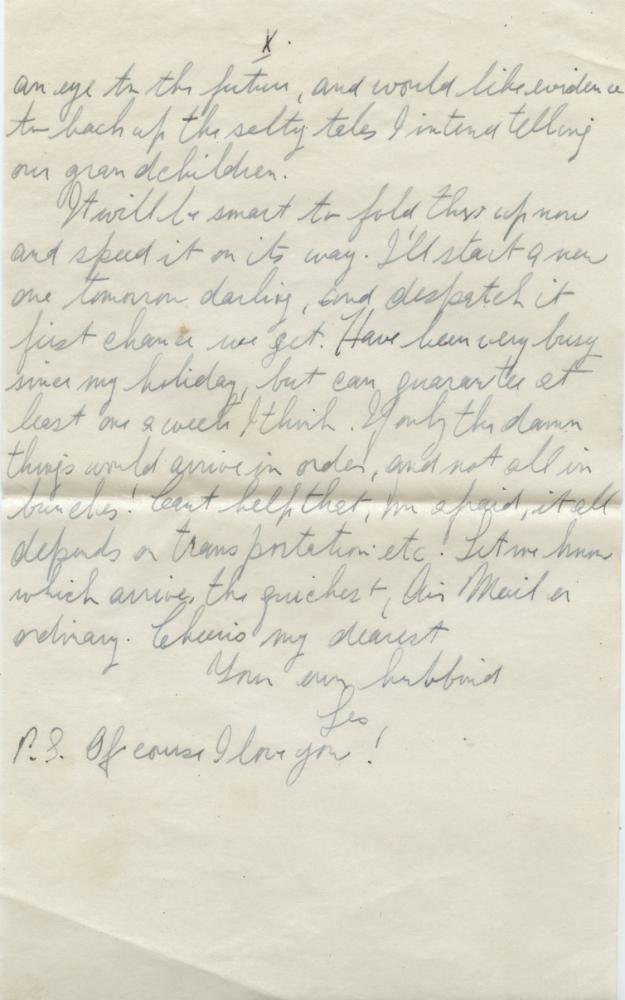 X.
an eye to the future, and would like evidence
to back up the salty tales I intend telling
our grandchildren.
It will be smart to fold this up now
and speed it on its way. I'll start a new
one tomorrow darling, and despatch it
first chance we get. Have been very busy
since my holiday, but can guarantee at
least one a week I think. If only the damn
things would arrive in order, and not all in
bunches! Can't help that, I'm afraid, it all
depends on transportation etc. Let me know
which arrives the quickest, Air Mail or
ordinary. Cheerio my dearest
Your own hubbind
Les
P.S. Of course I love you!